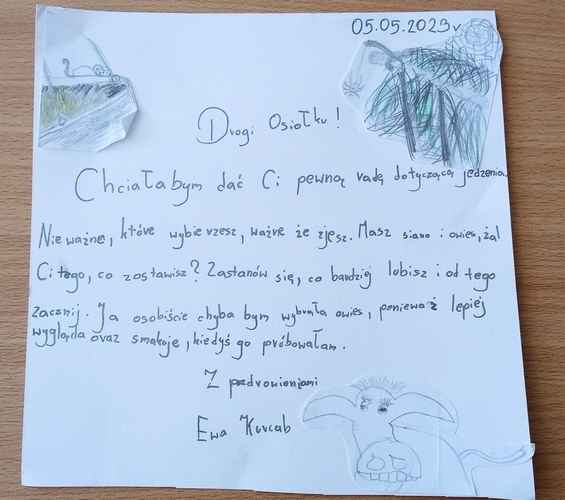 05.05.2023r.
Drogi Osiołku!
Chciałabym dać Ci pewną radę dotyczącą jedzenia.
Nie ważne, które wybierzesz, ważne że zjesz. Masz siano i owies, żal
Ci tego, co zostawisz? Zastanów się, co bardziej lubisz i od tego
zacznij. Ja osobiście chyba bym wybrała owies, ponieważ lepiej
wygląda oraz smakuje, kiedyś go próbowałam.
Z pozdrowieniami
Ewa Kurcab